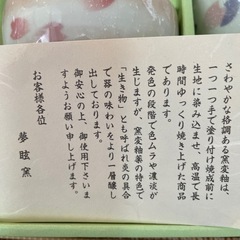 さわやかな格調ある窯変釉は、
一つ一つ手で塗り付け焼成前に
生地に染み込ませ、高温で長
時間ゆっくり焼き上げた商品
であります。
発色の段階で色ムラや濃淡が
生じますが、窯変釉薬の特色で
「生き物」とも呼ばれ炎の具合
で器の味わいをより一層醸し
出しております。
御安心の上、御使用下さいま
すようお願い申し上げます。
お客様各位
夢眩窯